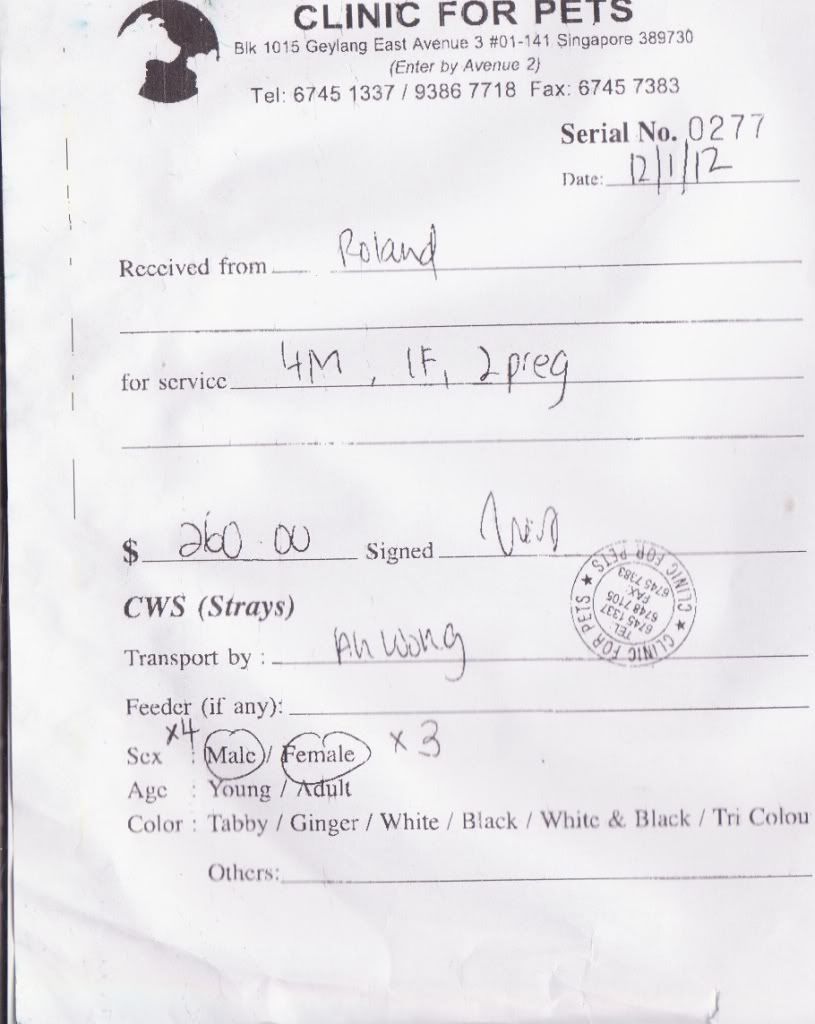 CLINIC FOR PETS
Blk 1015 Geylang East Avenue 3 #01-141 Singapore 389730
(Enter by Avenue 2)
Tel: 6745 1337 / 9386 7718 Fax: 6745 7383
Serial No. 0277
Date: 12/1/12
Received from Roland
for service 4M, 1F, 2 preg
$ 260.00 Signed
CLINIC FOR PETS ★ CLINIC FOR PETS ★
TEL:
6745 1337
6748 7105
FAX:
6745 7383
CWS (Strays)
Transport by : Ah Wong
Feeder (if any):
x4
Sex : Male / Female x 3
Age : Young / Adult
Color : Tabby / Ginger / White / Black / White & Black / Tri Colou
Others: